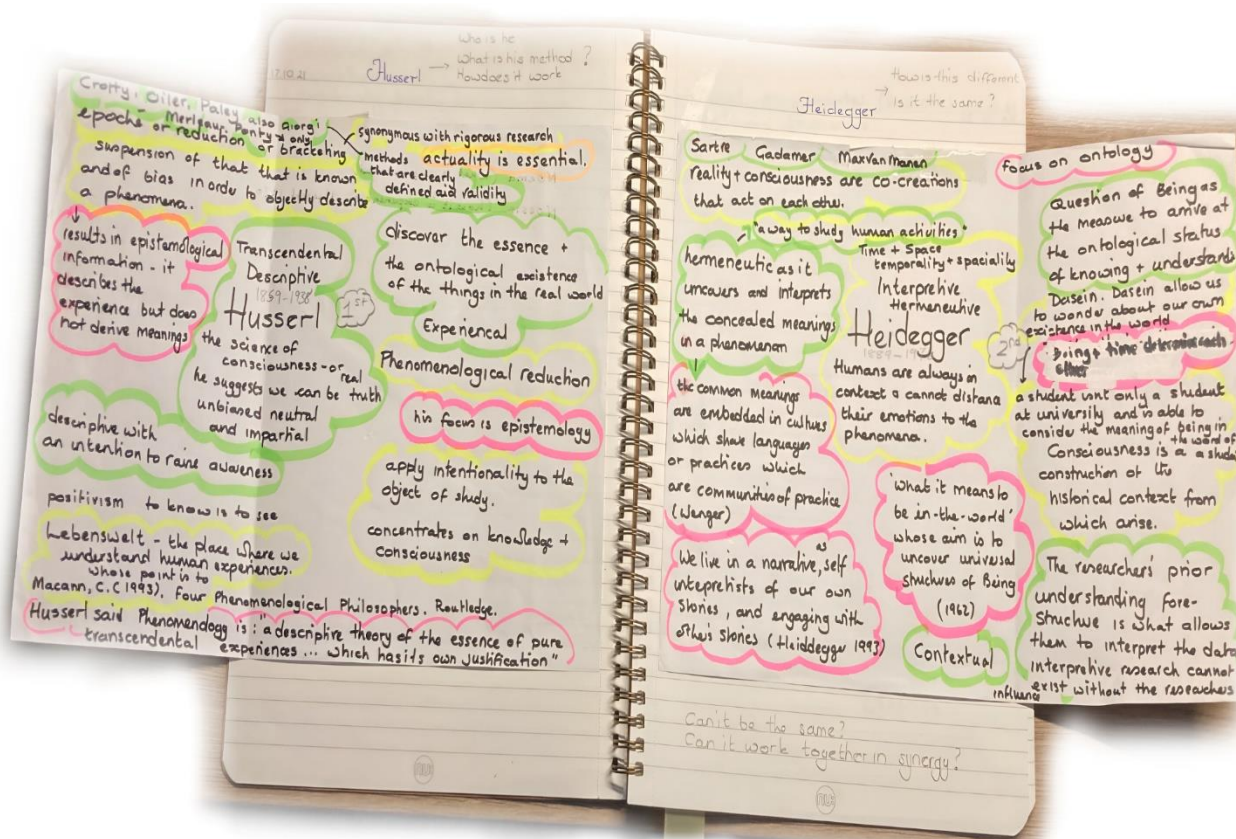 17.10.21
Husserl →
Who is he
What is his method ?
How does it work
Crotty, Oiler, Paley also Giorgi
Merleau-Ponty
epoche or reduction or bracketing
suspension of that that is known
and of bias in order to objectly describe
a phenomena.
synonymous with rigorous research
methods actuality is essential.
that are clearly
defined aid validity
results in epistemological
information - it
describes the
experience but does
not derive meanings
Transcendental
Descriptive
1859-1938
Husserl
1st
the science of
consciousness - or real
he suggests we can be truth
unbiased neutral
and impartial
discover the essence +
the ontological existence
of the things in the real world
Experiencal
Phenomenological reduction
his focus is epistemology
descriptive with
an intention to raise awareness
apply intentionality to the
object of study.
concentrates on knowledge +
consciousness
positivism to know is to see
Lebenswelt - the place where we
understand human experiences.
whose point is to
Macann, C.C (1993). Four Phenomenological Philosophers. Routledge.
Husserl said Phenomenology is: "a descriptive theory of the essence of pure
transcendental experiences ... which has its own justification"
Heidegger
How is this different
→ Is it the same ?
Sartre Gadamer Max Van Manen
reality + consciousness are co-creations
that act on each other.
"a way to study human activities"
hermeneutic as it
uncovers and interprets
the concealed meanings
in a phenomenon
Time + Space
temporality + spaciality
Interpretive
Hermeneutive
Heidegger
2nd
Humans are always in
context & cannot distance
their emotions to the
phenomena.
the common meanings
are embedded in cultures
which share languages
or practices which
are communities of practice
(Wenger)
'What it means to
be in-the-world'
whose aim is to
uncover universal
structures of Being
(1962)
We live in a narrative, as self
intepretists of our own
stories, and engaging with
other's stories (Heiddegger 1993)
Contextual
focus on ontology
Question of Being as
the meanwe to arrive at
the ontological status
of knowing + understands
Dasein. Dasein allow us
to wonder about our own
existence in the world
Being + time determine each
other
a student isnt only a student
at university and is able to
conside the meaning of being in
the world of
Consciousness is a a studen
construction of the
historical context from
which arise.
The researchers' prior
understanding fore-
structure is what allows
them to interpret the data
interpretive research cannot
exist without the researchers
influence
Can't be the same?
Can it work together in synergy?
nu
nu